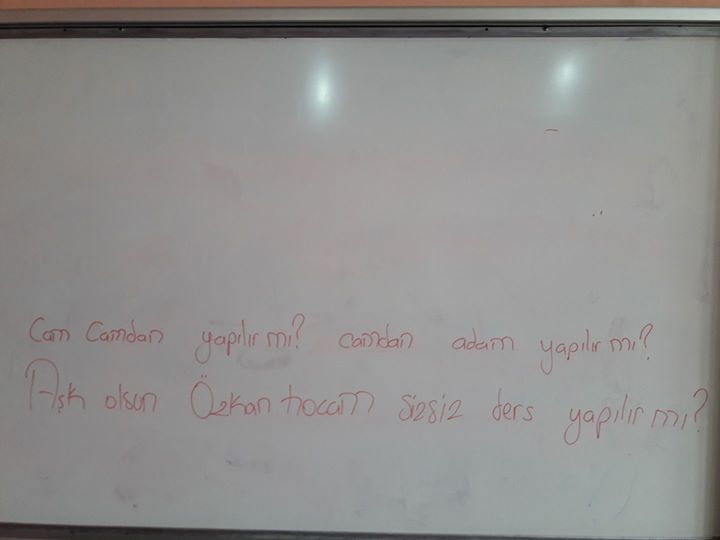 Cam Camdan yapılır mı? camdan adam yapılır mı?
Aşk olsun Özkan hocam sizsiz ders yapılır mı?